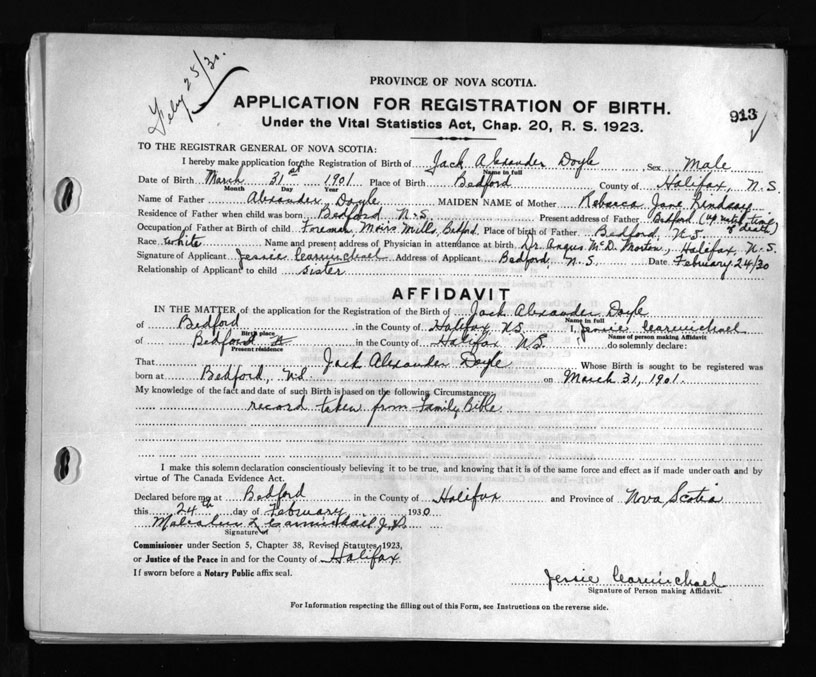 Feby 25/30.
PROVINCE OF NOVA SCOTIA.
APPLICATION FOR REGISTRATION OF BIRTH.
913
Under the Vital Statistics Act, Chap. 20, R. S. 1923.
TO THE REGISTRAR GENERAL OF NOVA SCOTIA:
I hereby make application for the Registration of Birth of Jack Alexander Doyle Sex Male
Name in full
Date of Birth March 31st 1901 Place of Birth Bedford County of Halifax, N.S.
Month Day Year
Name of Father Alexander Doyle MAIDEN NAME of Mother Rebecca Jane Lindsay
Residence of Father when child was born Bedford N.S. Present address of Father Bedford (up until time of death)
Occupation of Father at Birth of child Foreman Moirs Mills, Bedford. Place of birth of Father Bedford, N.S.
Race White Name and present address of Physician in attendance at birth Dr. Angus McD. Morton, Halifax, N.S.
Signature of Applicant Jessie Carmichael Address of Applicant Bedford, N.S. Date February 24/30
Relationship of Applicant to child Sister
AFFIDAVIT
IN THE MATTER of the application for the Registration of the Birth of Jack Alexander Doyle
Name in full
of Bedford in the County of Halifax N.S. I, Jessie Carmichael
Birth place Name of person making Affidavit
of Bedford in the County of Halifax N.S. do solemnly declare:
Present residence
That Jack Alexander Doyle Whose Birth is sought to be registered was
born at Bedford, N.S. on March 31, 1901.
My knowledge of the fact and date of such Birth is based on the following Circumstances
record taken from Family Bible
I make this solemn declaration conscientiously believing it to be true, and knowing that it is of the same force and effect as if made under oath and by
virtue of The Canada Evidence Act.
Declared before me at Bedford in the County of Halifax and Province of Nova Scotia
this 24th day of February 1930
Carmichael J.P.
Signature of
Commissioner under Section 5, Chapter 38, Revised Statutes 1923,
or Justice of the Peace in and for the County of Halifax
If sworn before a Notary Public affix seal.
Jessie Carmichael
Signature of Person making Affidavit.
For Information respecting the filling out of this Form, see Instructions on the reverse side.